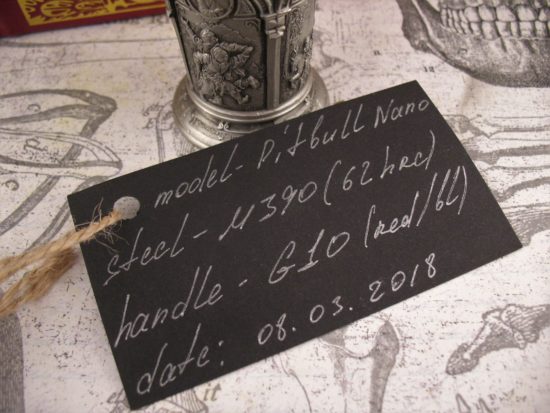 model - Pitbull Nano
steel - M390 (62 hrc)
handle - G10 (red/bl)
date: 08.03.2018